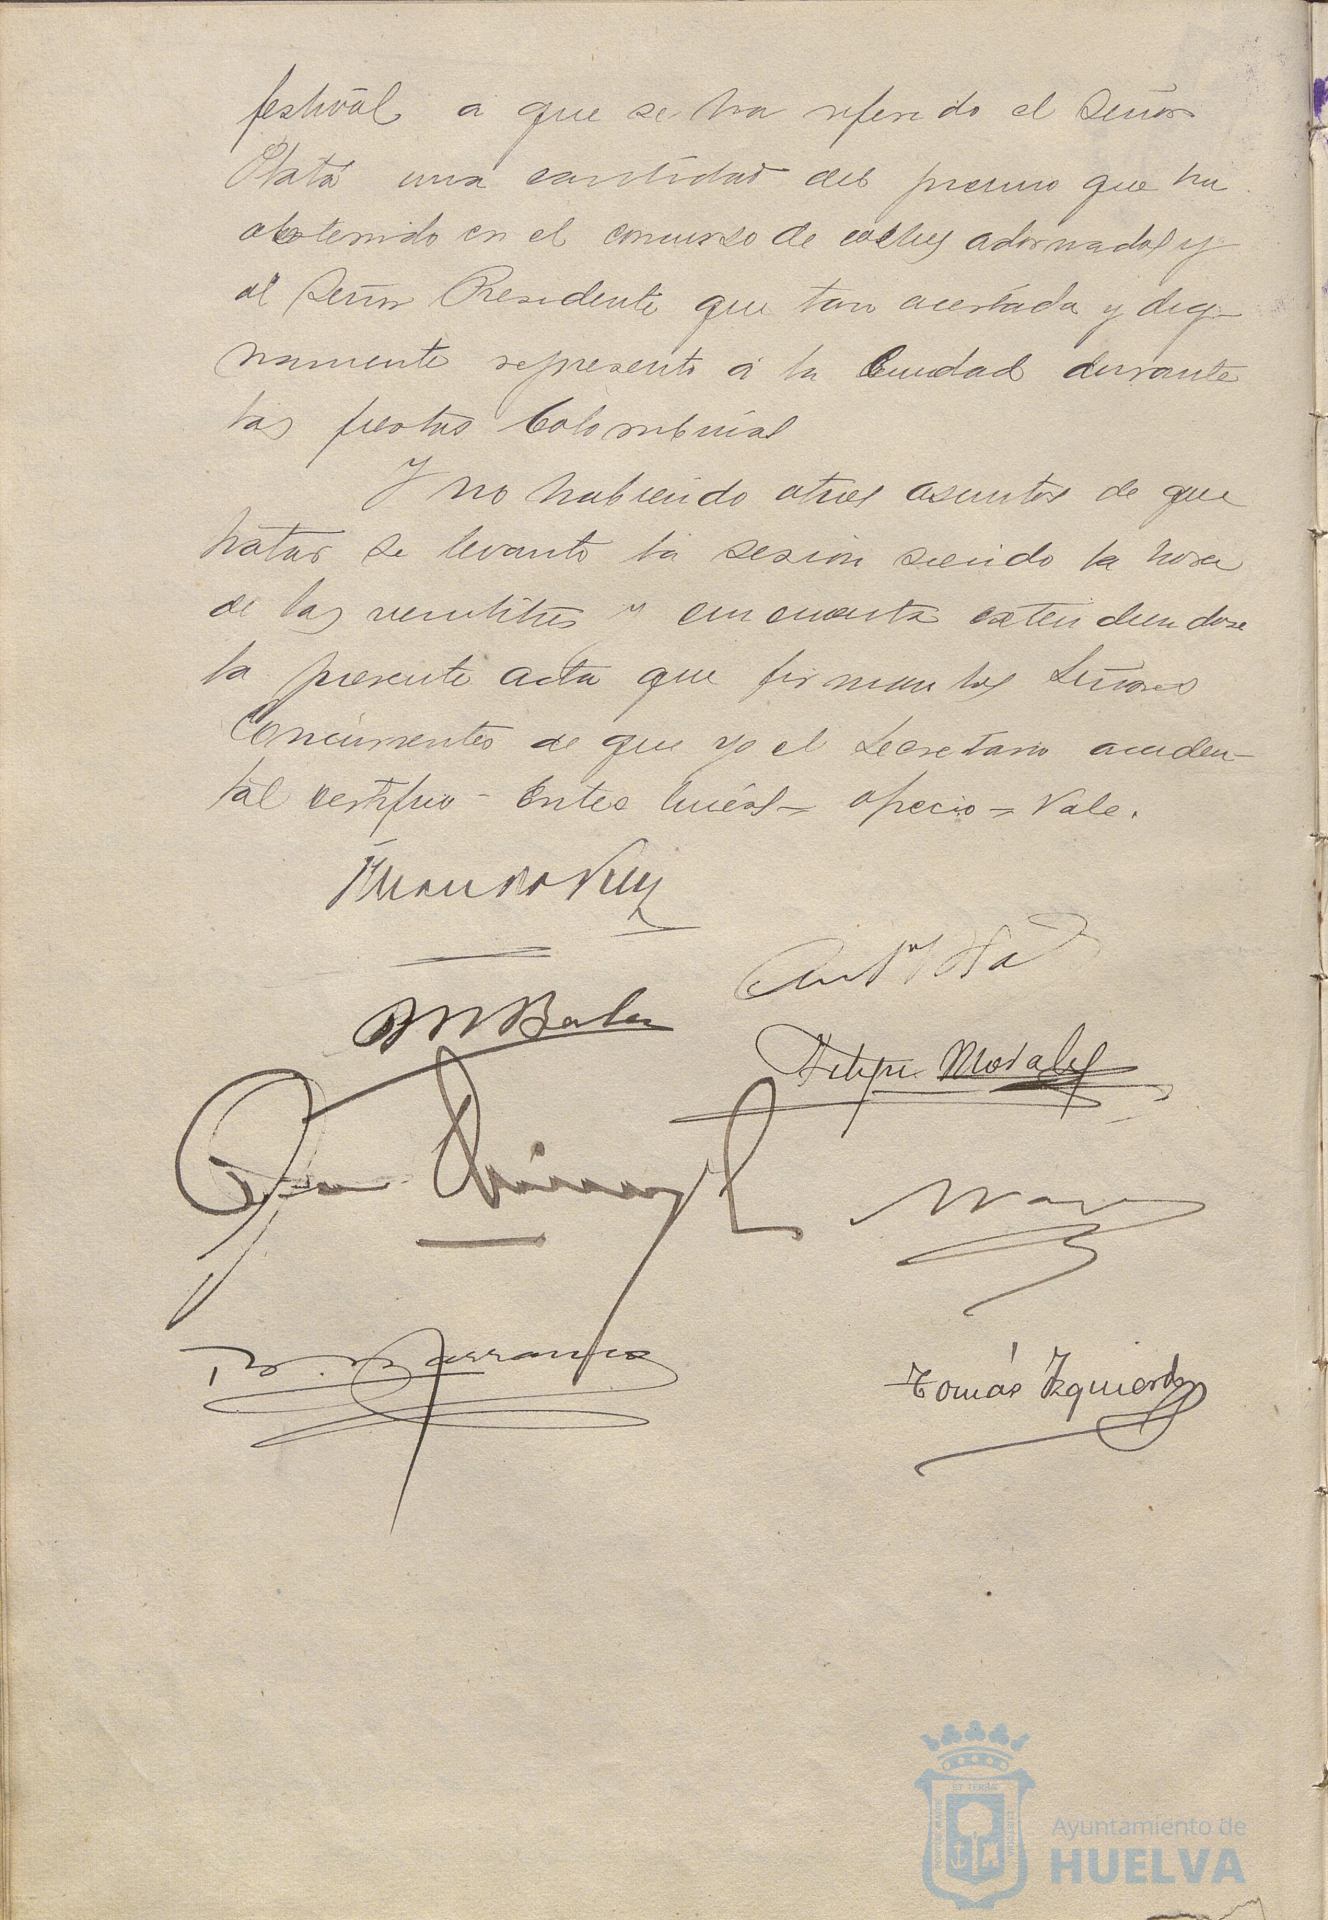 festival a que se ha referido el Señor
Plata una cantidad del premio que ha
obtenido en el concurso de coches adornados y
al Señor Presidente que tan acertada y dig-
namente represento á la Ciudad durante
las fiestas Colombinas
Y no habiendo otros asuntos de que
tratar se levanto la sesion siendo la hora
de las veintitres y cincuenta extendiendose
la presente acta que firman los Señores
Concurrentes de que yo el Secretario acciden-
tal certifico - Entre lineas = aprecio = Vale.
Felipe Morales
Tomás Izquierdo
ET TERRA
Ayuntamiento de
HUELVA